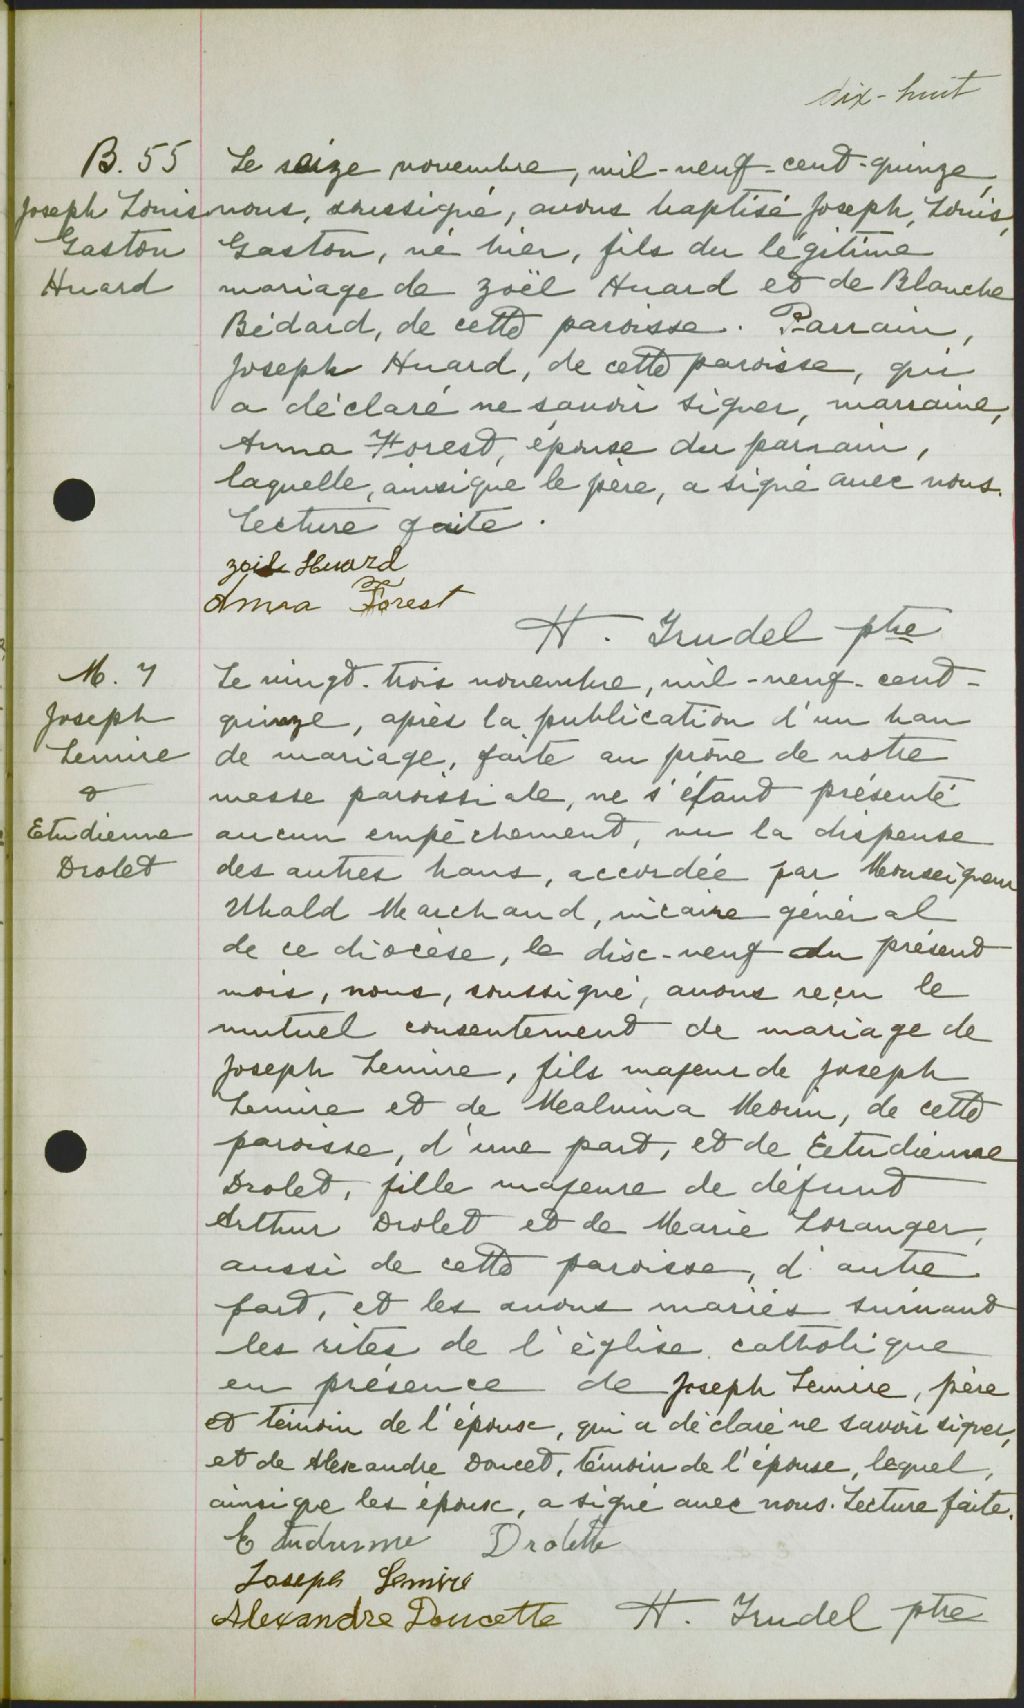 dix-huit
B. 55
Joseph Louis
Gaston
Huard
Le seize novembre, mil-neuf-cent-quinze,
nous, soussigné, avons baptisé Joseph, Louis,
Gaston, né hier, fils du légitime
mariage de Zoël Huard et de Blanche
Bédard, de cette paroisse. Parrain,
Joseph Huard, de cette paroisse, qui
a déclaré ne savoir signer, marraine,
Anna Forest, épouse du parrain,
laquelle, ainsi que le père, a signé avec nous.
Lecture faite.
Huard
Anna Forest
H. Trudel ptre
M. 7
Joseph
Lemire
&
Etudienne
Drolet
Le vingt-trois novembre, mil-neuf-cent-
quinze, après la publication d'un ban
de mariage, faite au prône de notre
messe paroissiale, ne s'étant présenté
aucun empêchement, vu la dispense
des autres bans, accordée par Monseigneur
Ubald Marchand, vicaire général
de ce diocèse, le dix-neuf du présent
mois, nous, soussigné, avons reçu le
mutuel consentement de mariage de
Joseph Lemire, fils majeur de Joseph
Lemire et de Malvina Morin, de cette
paroisse, d'une part, et de Etudienne
Drolet, fille majeure de défunt
Arthur Drolet et de Marie Loranger,
aussi de cette paroisse, d'autre
part, et les avons mariés suivant
les rites de l'église catholique
en présence de Joseph Lemire, père
et témoin de l'époux, qui a déclaré ne savoir signer,
et de Alexandre Doucet, témoin de l'épouse, lequel,
ainsi que les époux, a signé avec nous. Lecture faite.
Drolette
Joseph Lemire
Alexandre Doucette
H. Trudel ptre